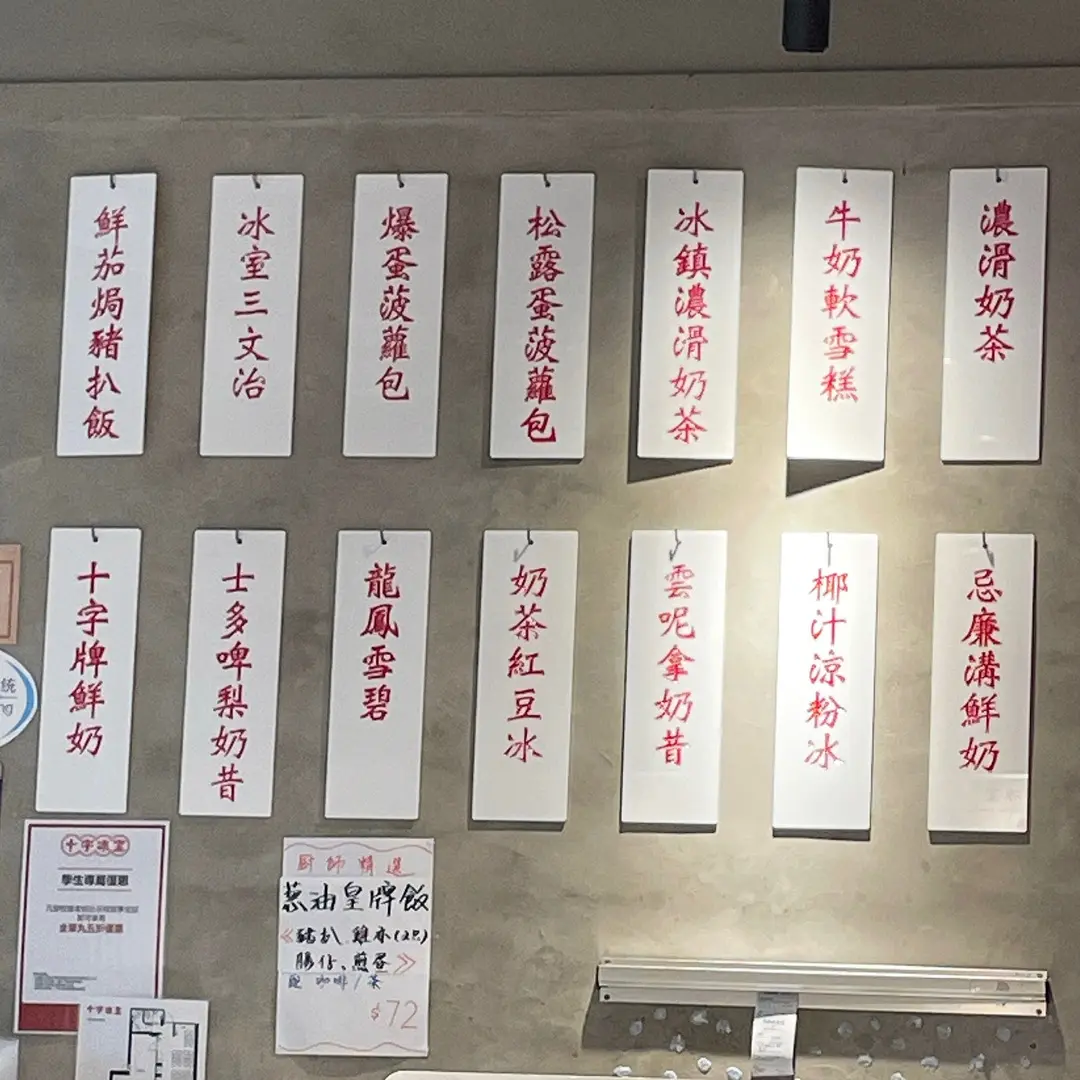 鮮茄焗豬扒飯
冰室三文治
爆蛋菠蘿包
松露蛋菠蘿包
冰鎮濃滑奶茶
牛奶軟雪糕
濃滑奶茶
十字牌鮮奶
士多啤梨奶昔
龍鳳雪碧
奶茶紅豆冰
雲呢拿奶昔
椰汁涼粉冰
忌廉溝鮮奶
統
十字冰室
學生專屬優惠
全單九五折優惠
廚師精選
蔥油皇牌飯
豬扒 雞亦(2只)
腸仔、煎蛋
配 咖啡/茶
$72
十字冰室